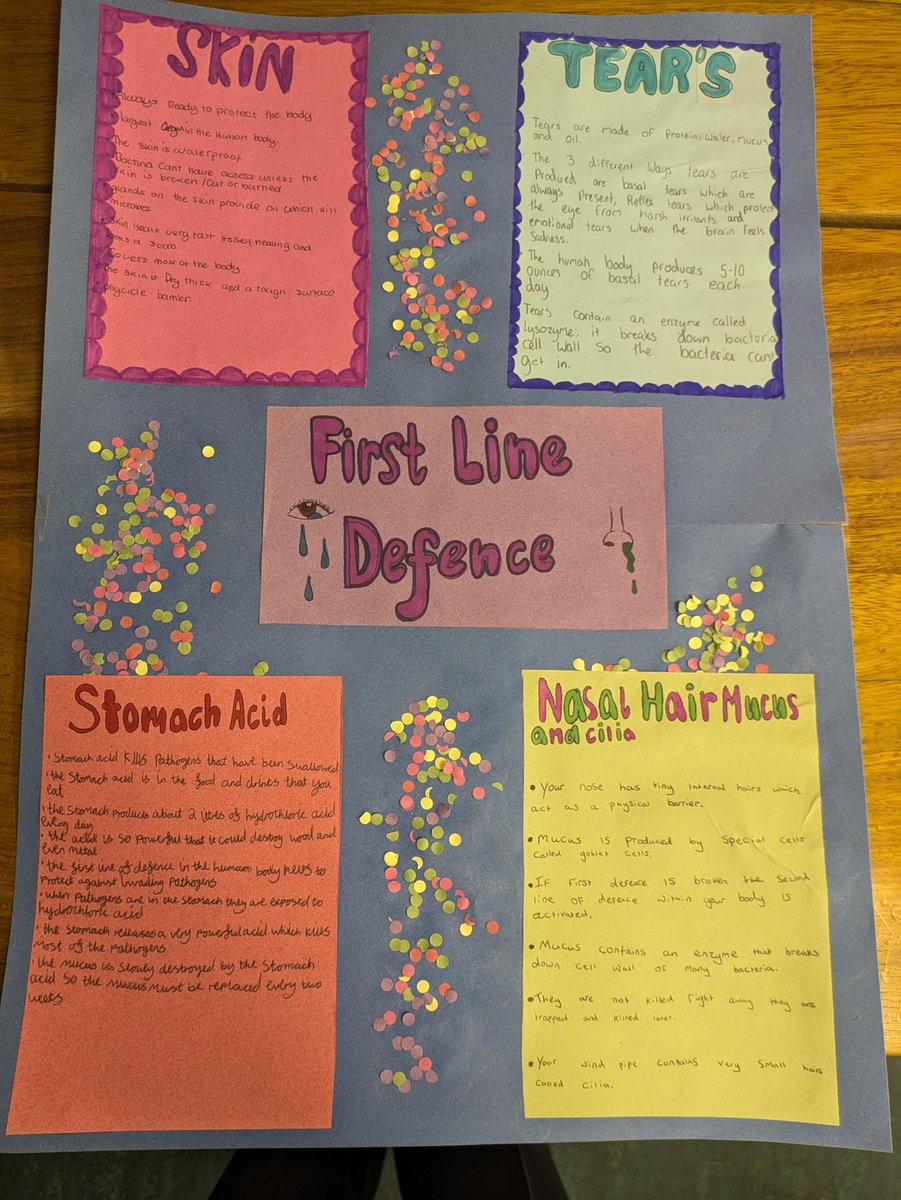 SKIN
Always Ready to protect the body
largest organ in the Human body
The skin is waterproof
Bactiria Cant have access unless the
skin is broken /cut or burned
glands on the skin provide oil which kill
microbes
skin Heals very fast itself Healing and
forms a scab
Covers most of the body
The skin is Dry thick and a tough surface
phycicle barrier
TEAR'S
Tears are made of Protein, water, mucus
and oil.
The 3 different ways tears are
Produed are basal tears which are
always Present, Reflex tears which protect
the eye from harsh irritants and
emotional tears when the brain feels
Sadness.
The human body produces 5-10
ounces of basal tears each
day
Tears contain an enzyme called
Lysozyme, it breaks down bacteria
Cell Wall so the bacteria cant
get in.
First Line
Defence
Stomach Acid
• Stomach acid kills Pathogens that have been swallowed
• the Stomach acid is in the food and drinks that you
eat
• the Stomach products about 2 litres of hydrochloric acid
every day
• the acid is so powerful that it could destroy wood and
even metal
• the first line of defence in the human body helps to
Protect against invading Pathogens
• when Pathogens are in the stomach they are exposed to
hydrochloric acid
• the stomach releases a very powerful acid which kills
most of the pathogens
• the mucus is slowly destroyed by the stomach
acid so the mucus must be replaced every two
weeks
Nasal Hair Mucus
and cilia
• Your nose has tiny internal hairs which
act as a physical barrier.
• Mucus is produced by special cells
called goblet cells.
• If first defence is broken the second
line of defence within your body is
activated.
• Mucus contains an enzyme that breaks
down cell wall of many bacteria.
• They are not killed right away they are
trapped and killed later.
• Your wind pipe contains very small hairs
called cilia.